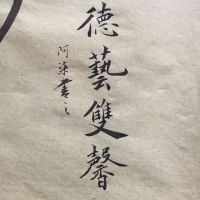 德藝雙馨
阿柒書之